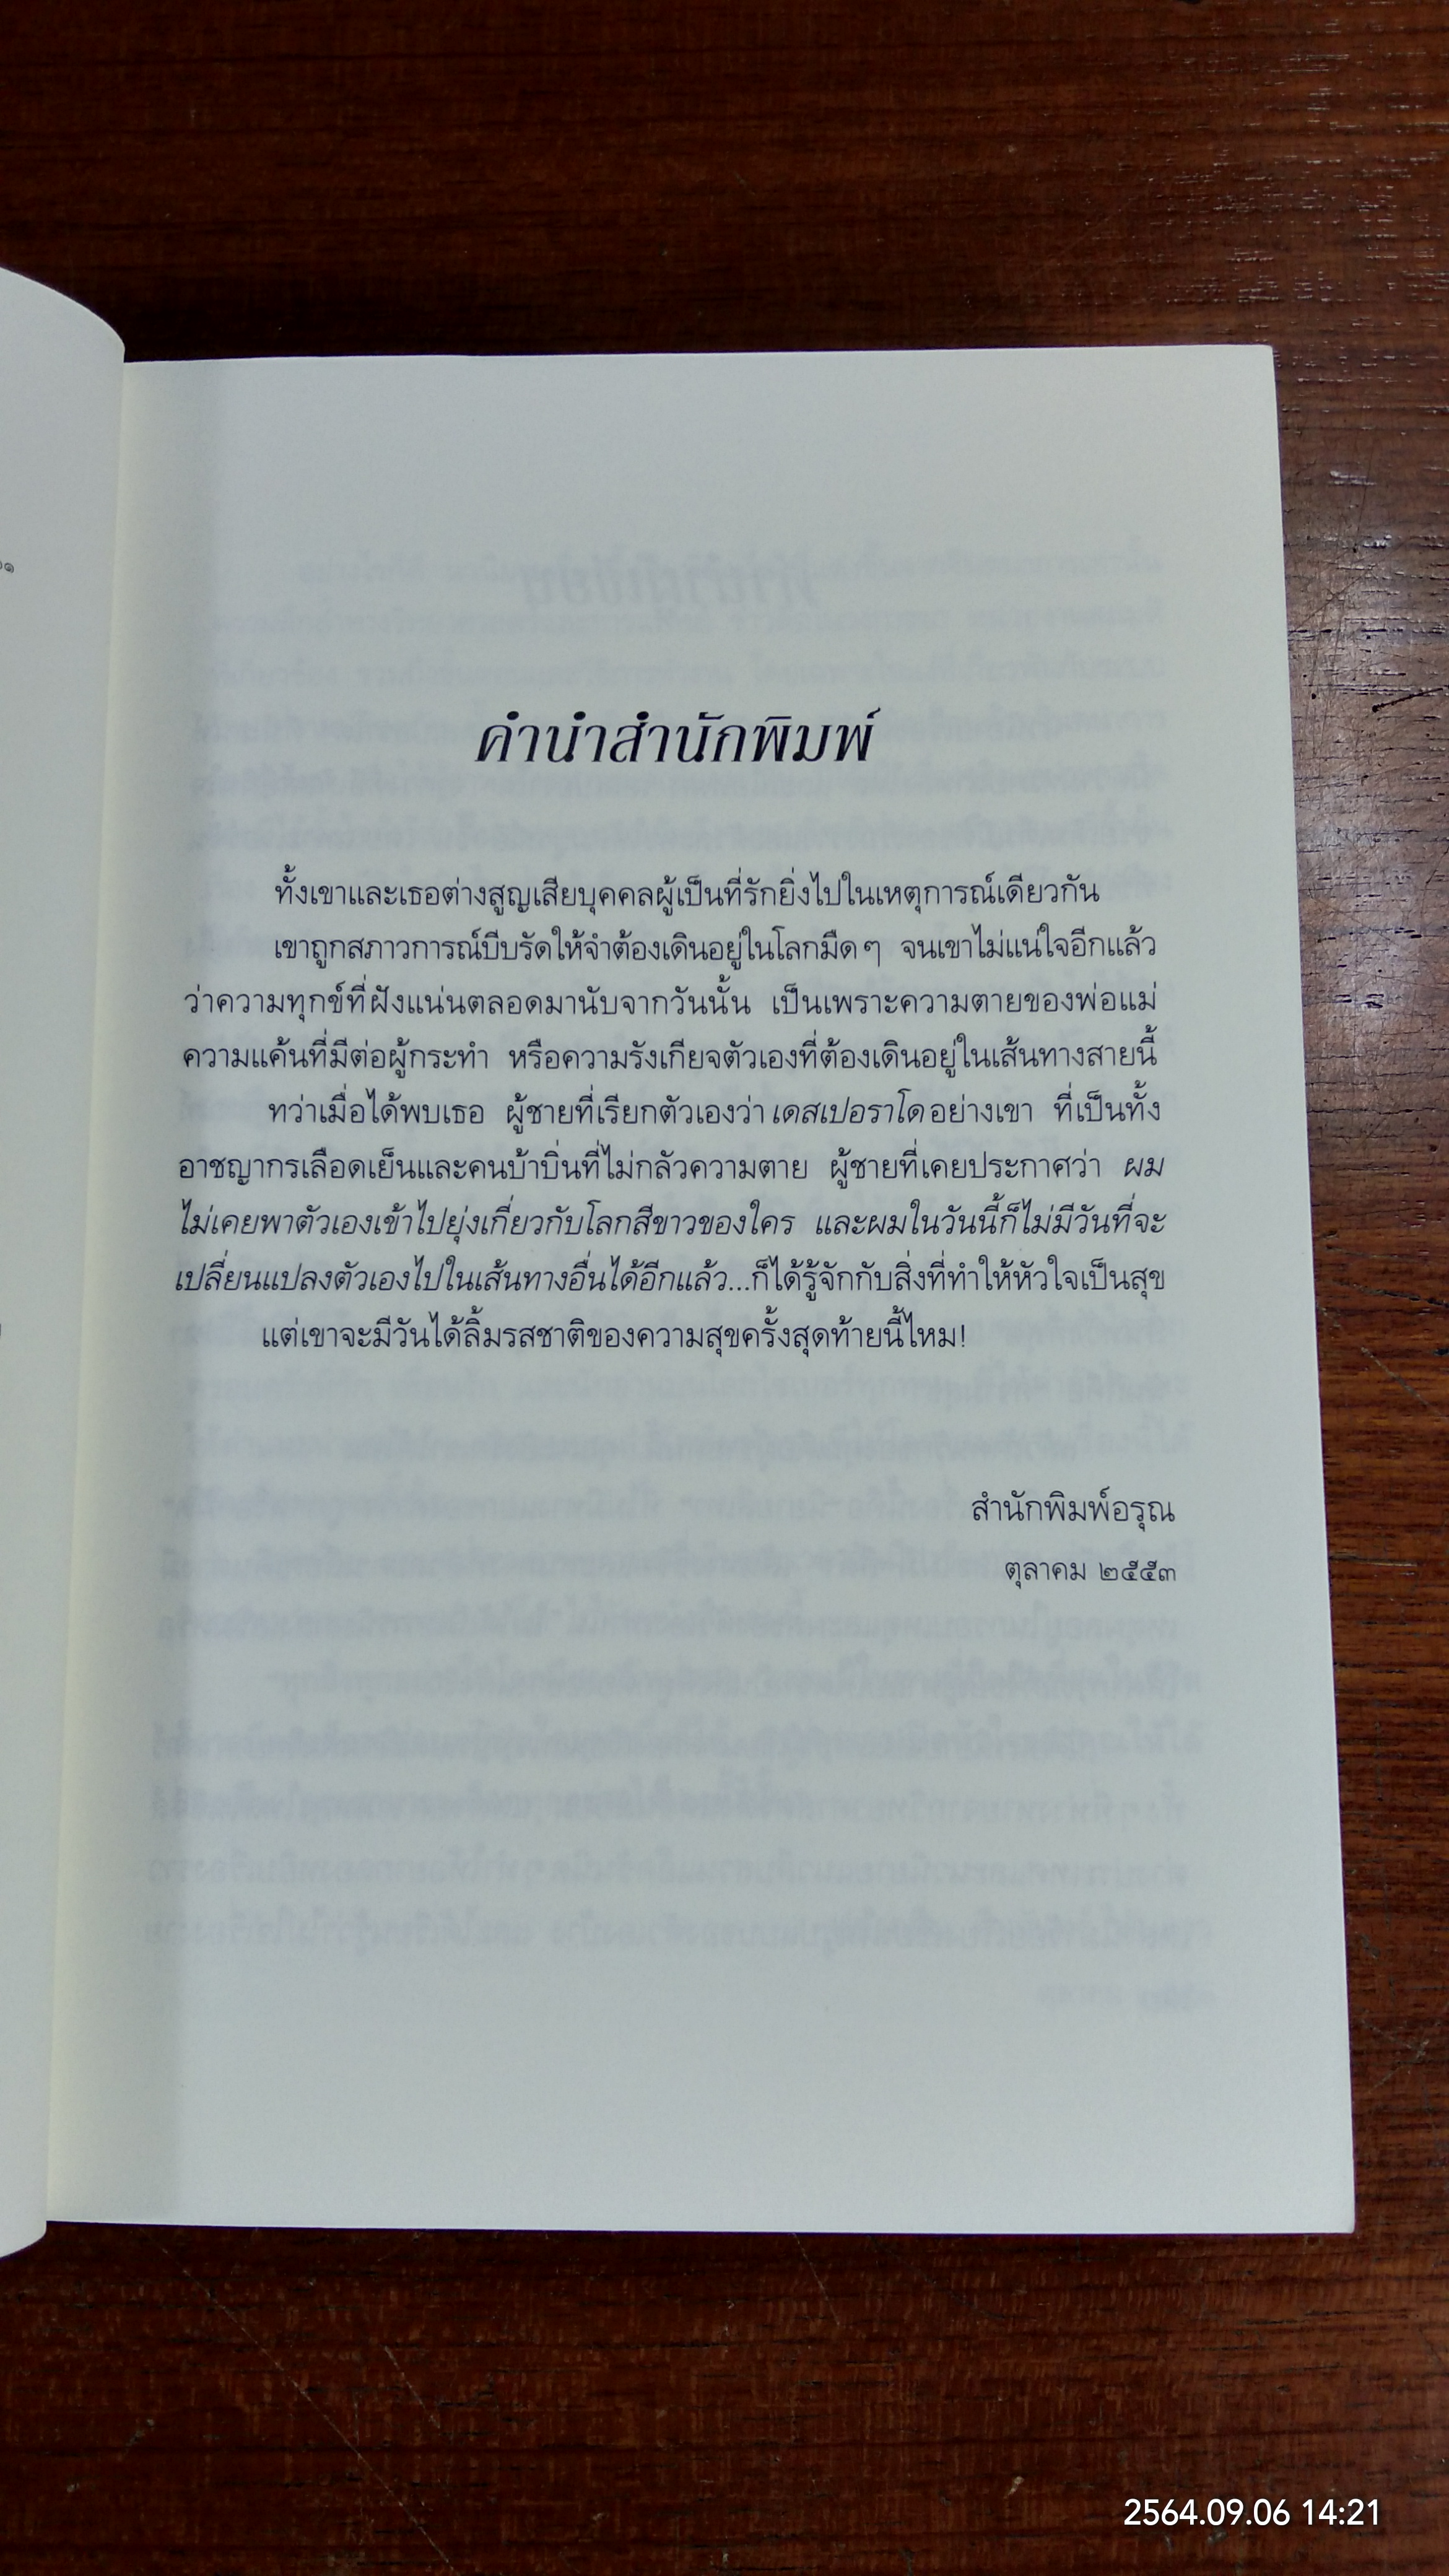 คำนำสำนักพิมพ์
ทั้งเขาและเธอต่างสูญเสียบุคคลผู้เป็นที่รักยิ่งไปในเหตุการณ์เดียวกัน
เขาถูกสภาวการณ์บีบรัดให้จำต้องเดินอยู่ในโลกมืดๆ จนเขาไม่แน่ใจอีกแล้ว
ว่าความทุกข์ที่ฝังแน่นตลอดมานับจากวันนั้น เป็นเพราะความตายของพ่อแม่
ความแค้นที่มีต่อผู้กระทำ หรือความรังเกียจตัวเองที่ต้องเดินอยู่ในเส้นทางสายนี้
ทว่าเมื่อได้พบเธอ ผู้ชายที่เรียกตัวเองว่า เดสเปอราโด อย่างเขา ที่เป็นทั้ง
อาชญากรเลือดเย็นและคนบ้าบิ่นที่ไม่กลัวความตาย ผู้ชายที่เคยประกาศว่า ผม
ไม่เคยพาตัวเองเข้าไปยุ่งเกี่ยวกับโลกสีขาวของใคร และผมในวันนี้ก็ไม่มีวันที่จะ
เปลี่ยนแปลงตัวเองไปในเส้นทางอื่นได้อีกแล้ว...ก็ได้รู้จักกับสิ่งที่ทำให้หัวใจเป็นสุข
แต่เขาจะมีวันได้ลิ้มรสชาติของความสุขครั้งสุดท้ายนี้ไหม!
สำนักพิมพ์อรุณ
ตุลาคม ๒๕๕๓
2564.09.06 14:21